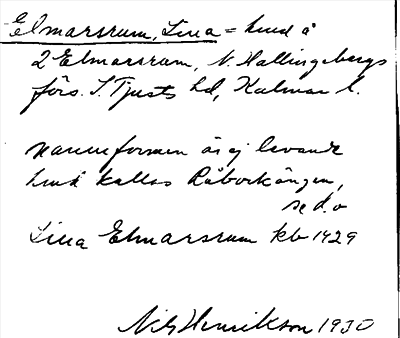 Elmarsrum, Lina = hmd å
2 Elmarsrum, N. Hallingebergs
förs. S. Tjusts hd, Kalmar l.
Namnformen är ej levande
kallas Råbockängen,
se d. o
Lilla Elmarsrum kb 1429
Nils Henrikson 1930